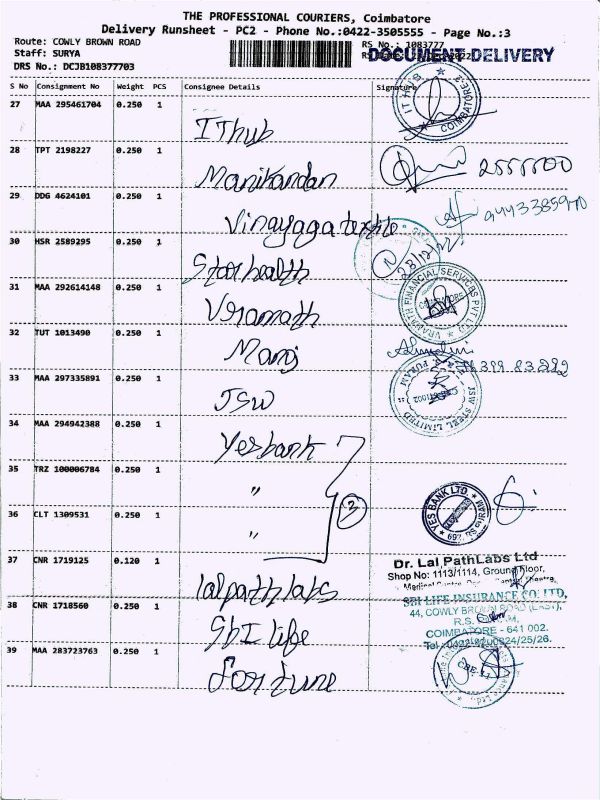 THE PROFESSIONAL COURIERS, Coimbatore
Delivery Runsheet - PC2 - Phone No.:0422-3505555 - Page No.:3
Route: COWLY BROWN ROAD
RS No.: 1083777
Staff: SURYA
DOCUMENT DELIVERY
DRS No.: DCJB108377703
S No Consignment No Weight PCS Consignee Details Signature
27 MAA 295461704 0.250 1
IThub
IT HUB COIMBATORE-2
28 TPT 2198227 0.250 1
Manikandan
29 DDG 4624101 0.250 1
Vinayaga textile
30 HSR 2589295 0.250 1
Star health
28/12/22
31 MAA 292614148 0.250 1
FINANCIAL SERVICES PVT
32 TUT 1013490 0.250 1
Manoj
33 MAA 297335891 0.250 1
JSW
JSW STEEL LIMITED
34 MAA 294942388 0.250 1
Yesbank
35 TRZ 100006784 0.250 1
"
3
YES BANK LTD.
36 CLT 1309531 0.250 1
"
37 CNR 1719125 0.120 1
lalpath labs
Dr. Lal PathLabs Ltd
Shop No: 1113/1114, Ground Floor,
38 CNR 1718560 0.250 1
SbI life
SBI LIFE INSURANCE CO. LTD,
44, COWLY BROWN ROAD (EAST),
COIMBATORE - 641 002.
39 MAA 283723763 0.250 1
fortune